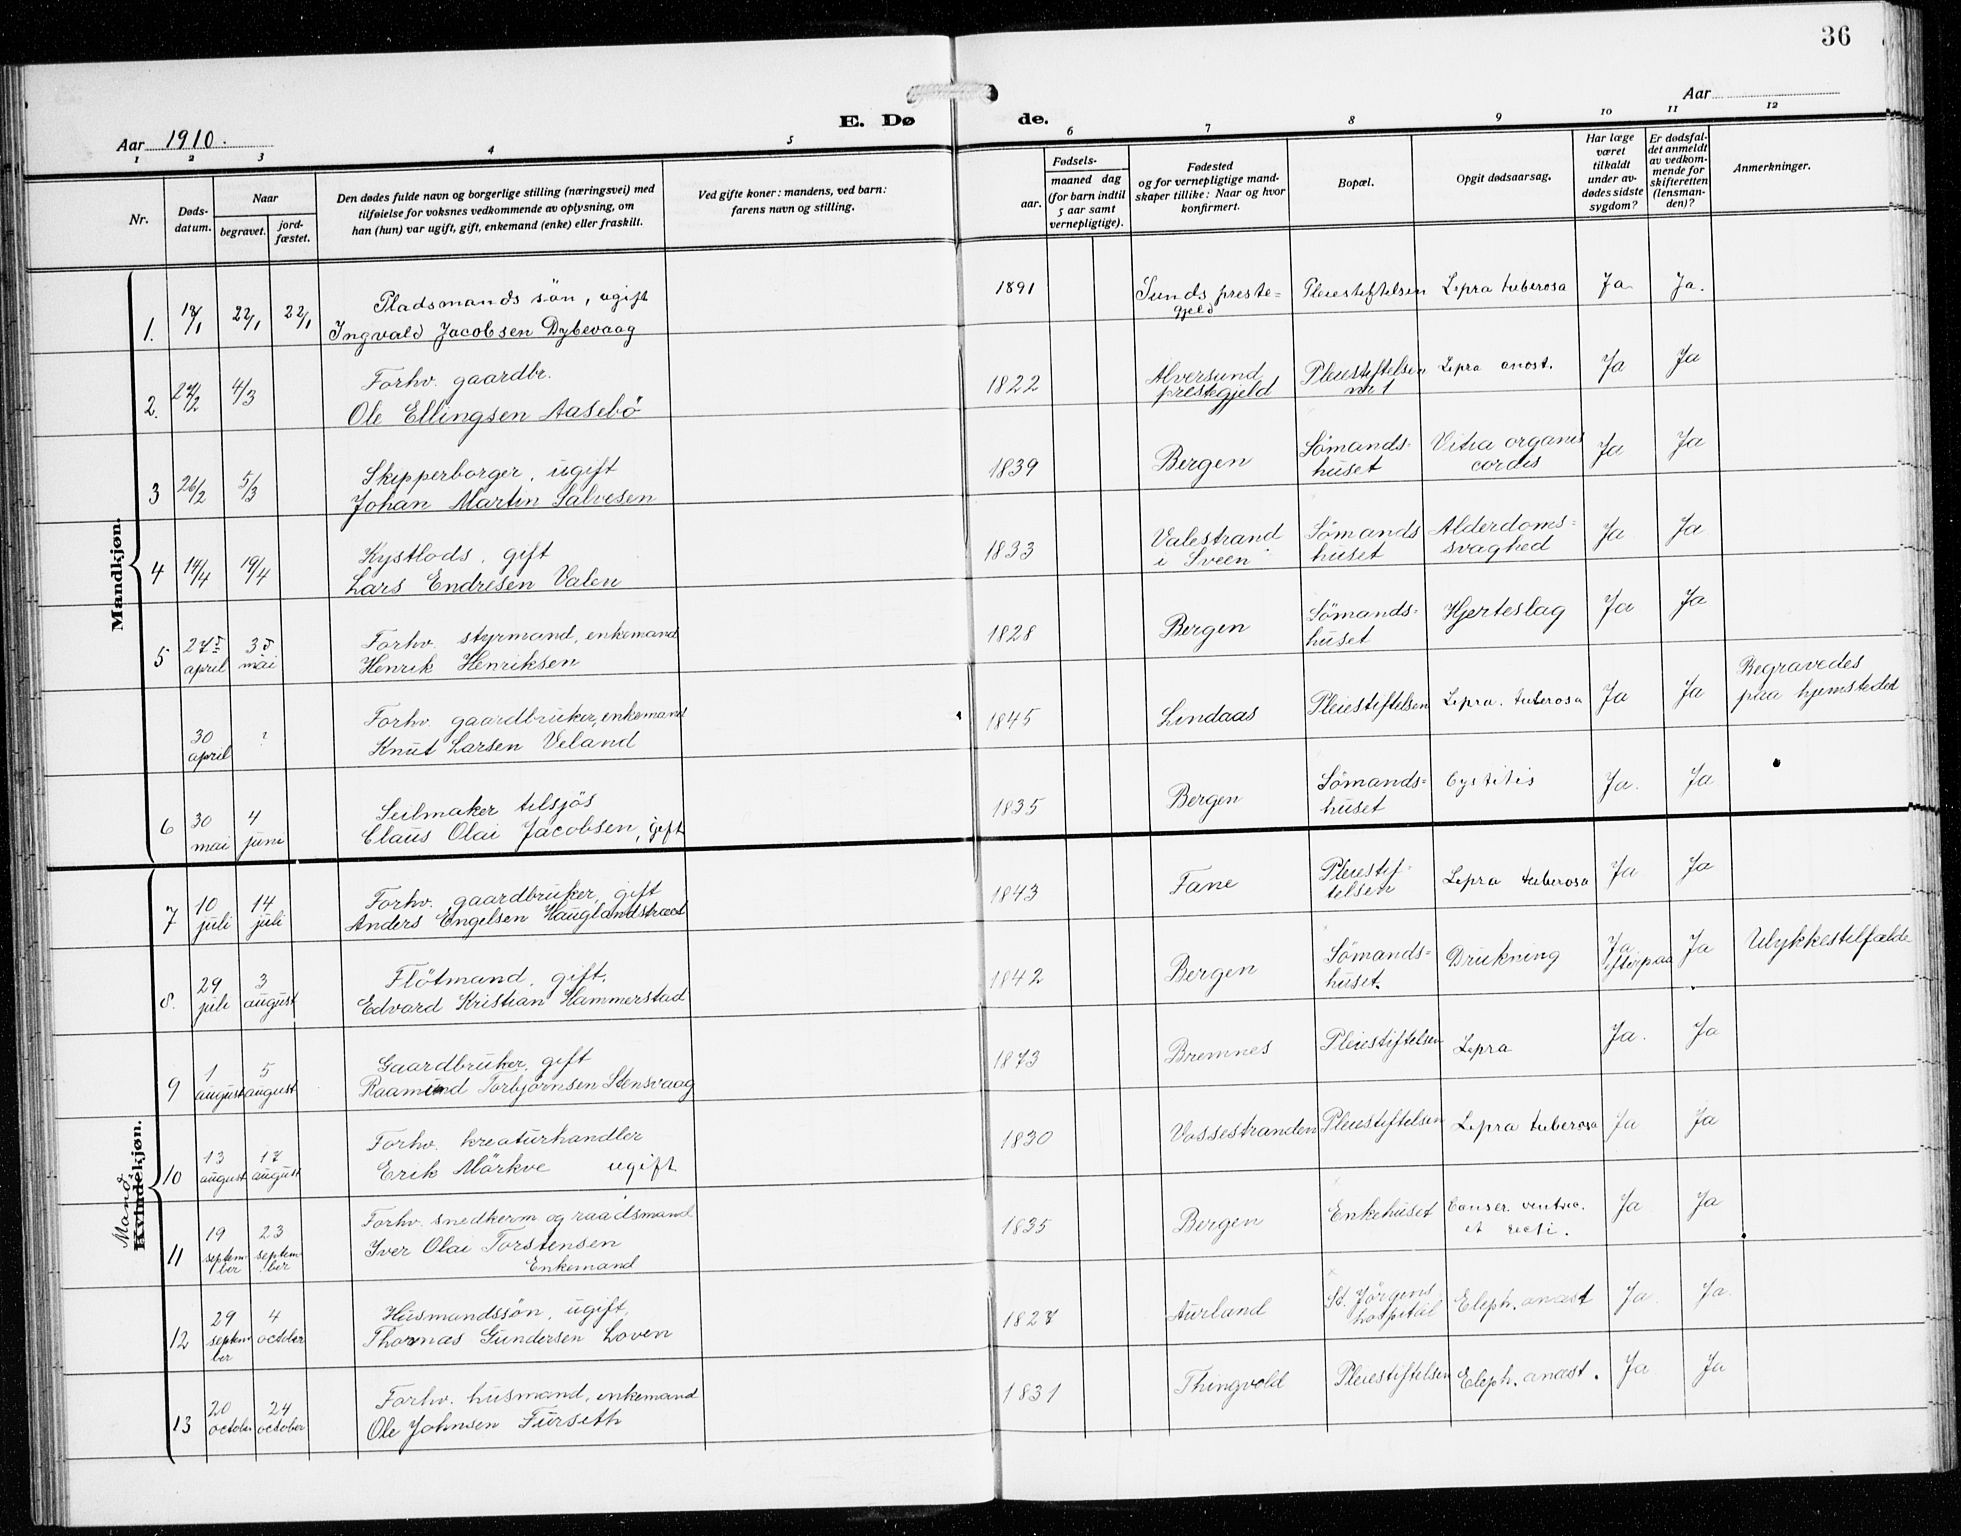 36
Aar 1910.
E. Døde.
Aar
1 2 3 4 5 6 7 8 9 10 11 12
Nr.
Døds-
datum.
Naar
begravet.
jord-
fæstet.
Den dødes fulde navn og borgerlige stilling (næringsvei) med
tilføielse for voksnes vedkommende av oplysning, om
han (hun) var ugift, gift, enkemand (enke) eller fraskilt.
Ved gifte koner: mandens, ved barn:
farens navn og stilling.
Fødsels-
aar.
maaned dag
(for barn indtil
5 aar samt
vernepligtige).
Fødested
og for vernepligtige mand-
skaper tillike: Naar og hvor
konfirmert.
Bopæl.
Opgit dødsaarsag.
Har læge
været
tilkaldt
under av-
dødes sidste
sygdom?
Er dødsfal-
det anmeldt
av vedkom-
mende for
skifteretten
(lensman-
den)?
Anmerkninger.
Mandkjøn.
1. 18/1 22/1 22/1 Pladsmands søn, ugift
Ingvald Jacobsen Dybevaag
1891 Sunds preste=
gjeld Pleiestiftelsen Lepra tuberosa Ja Ja.
2. 4/3 Forhv. gaardbr.
Ole Ellingsen Aasebö
1822 Alversund
prestegjeld Pleiestiftelsen
nr 1 Lepra anæst. Ja Ja
3 26/2 5/3 Skipperborger, ugift
Johan Martin Salvesen
1839 Bergen Sömands-
huset Vitia organis
cordis Ja Ja
4 14/4 19/4 Kystlods, gift
Lars Endresen Valen
1833 Valestrand
i Sveen Sömands
huset Alderdoms=
svaghed Ja Ja
5 april mai Forhv. styrmand, enkemand
Henrik Henriksen
1828 Bergen Sömands=
huset Hjerteslag Ja Ja
30
april ? Forhv. gaardbruker, enkemand
Knut Larsen Veland
1845 Lindaas Pleiestiftelsen Lepra tuberosa Ja Ja Begravedes
paa hjemstedet
6 30
mai 4
juni Seilmaker tilsjös
Claus Olai Jacobsen, gift
1835 Bergen Sömands=
huset Cystitis Ja. Ja
Mand.
Kvindekjøn.
7 10
juli 14
juli Forhv. gaardbruker, gift
Anders Engelsen Hauglandstræet
1843 Fane Pleiestif-
telsen Lepra tuberosa Ja Ja
8. 29
juli 3
august Flötmand, gift.
Edvard Kristian Hammerstad
1842 Bergen Sömands=
huset. Drukning Ja
efterpaa Ja Ulykkestilfælde
9 1
august 5
august Gaardbruker, gift
Raamund Torbjörnsen Stensvaag
1873 Bremnes Pleiestiftelsen Lepra Ja. Ja
10 13
august 17
august Forhv. kreaturhandler
Erik Mörkve ugift
1830 Vossestranden Pleiestiftelsen Lepra tuberosa Ja Ja
11 19
septem
ber 23
septem
ber Forhv. snedkerm og raadsmand
Iver Olai Torstensen
Enkemand
1835 Bergen Enkehuset Canser ventric.
et recti. Ja Ja
12 29
septem
ber 4
october Husmandssön, ugift,
Thomas Gundersen Loven
1827 Aurland St. Jörgens
hospital Eleph. anæst Ja Ja.
13 20
october 24
october Forhv. husmand, enkemand
Ole Johnsen Furseth
1831 Thingvold Pleiestiftelsen Eleph. anæst. Ja Ja